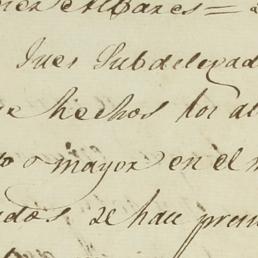 Alvares =
Jues Subdelegad
e hechos los al
to o mayor en el m
ados se han pren